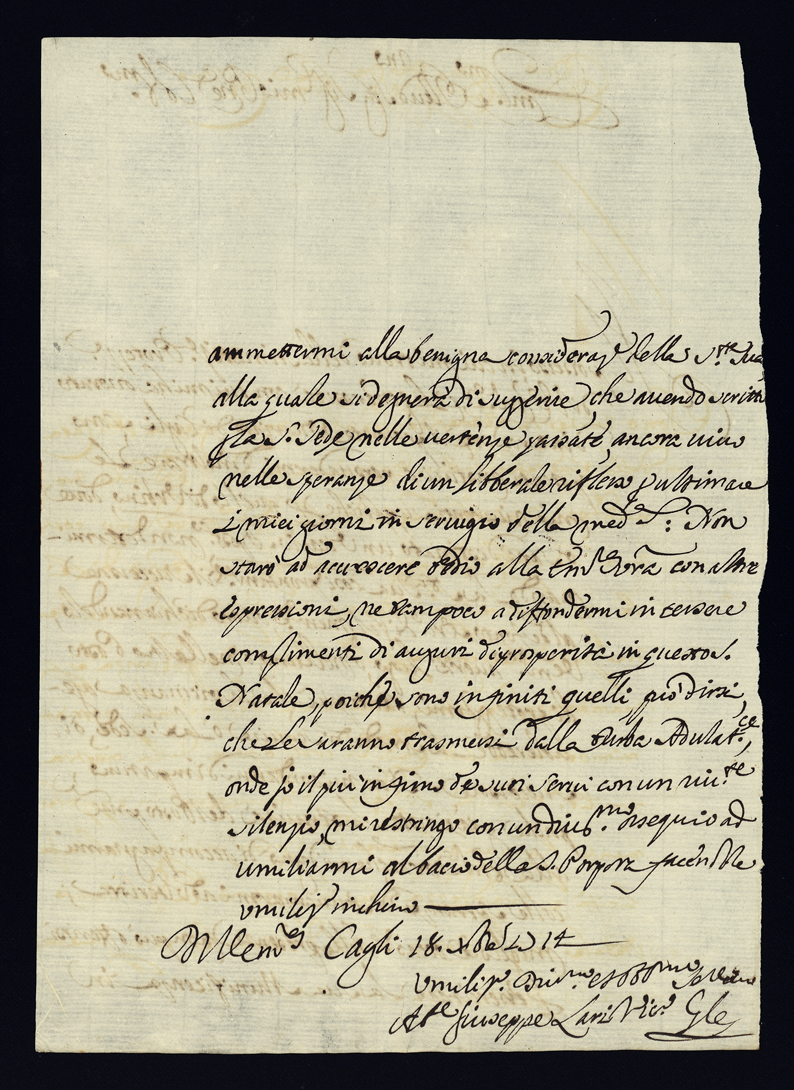 ammettermi alla benigna consideraz.e della S.tà Sua
alla quale si degnerà di supplire, che avendo scritto
p la S. Sede nelle vertenze passate, ancora vivo
nelle speranze di un libberale riflesso p ultimare
i miei giorni in servigio della med.a S.: Non
starò ad accrescere tedio alla Em.a Vra con altre
espressioni, ne tampoco a diffondermi in tessere
complimenti di auguri di prosperità in questo S.
Natale, poiche sono infiniti quelli, può dirsi,
che Le saranno trasmessi dalla turba Adulat.ce,
onde io il più infimo de suoi servi con un riv.te
silenzio, mi ristringo con un div.mo ossequio ad
umiliarmi al bacio della S. Porpora facendole
umiliss.o inchino
Dell Em.a V Cagli 18. Xbre 1714
Umiliss.o Div.mo et Obb.mo Servitore
Ab.e Giuseppe Lari Vic.o Gle